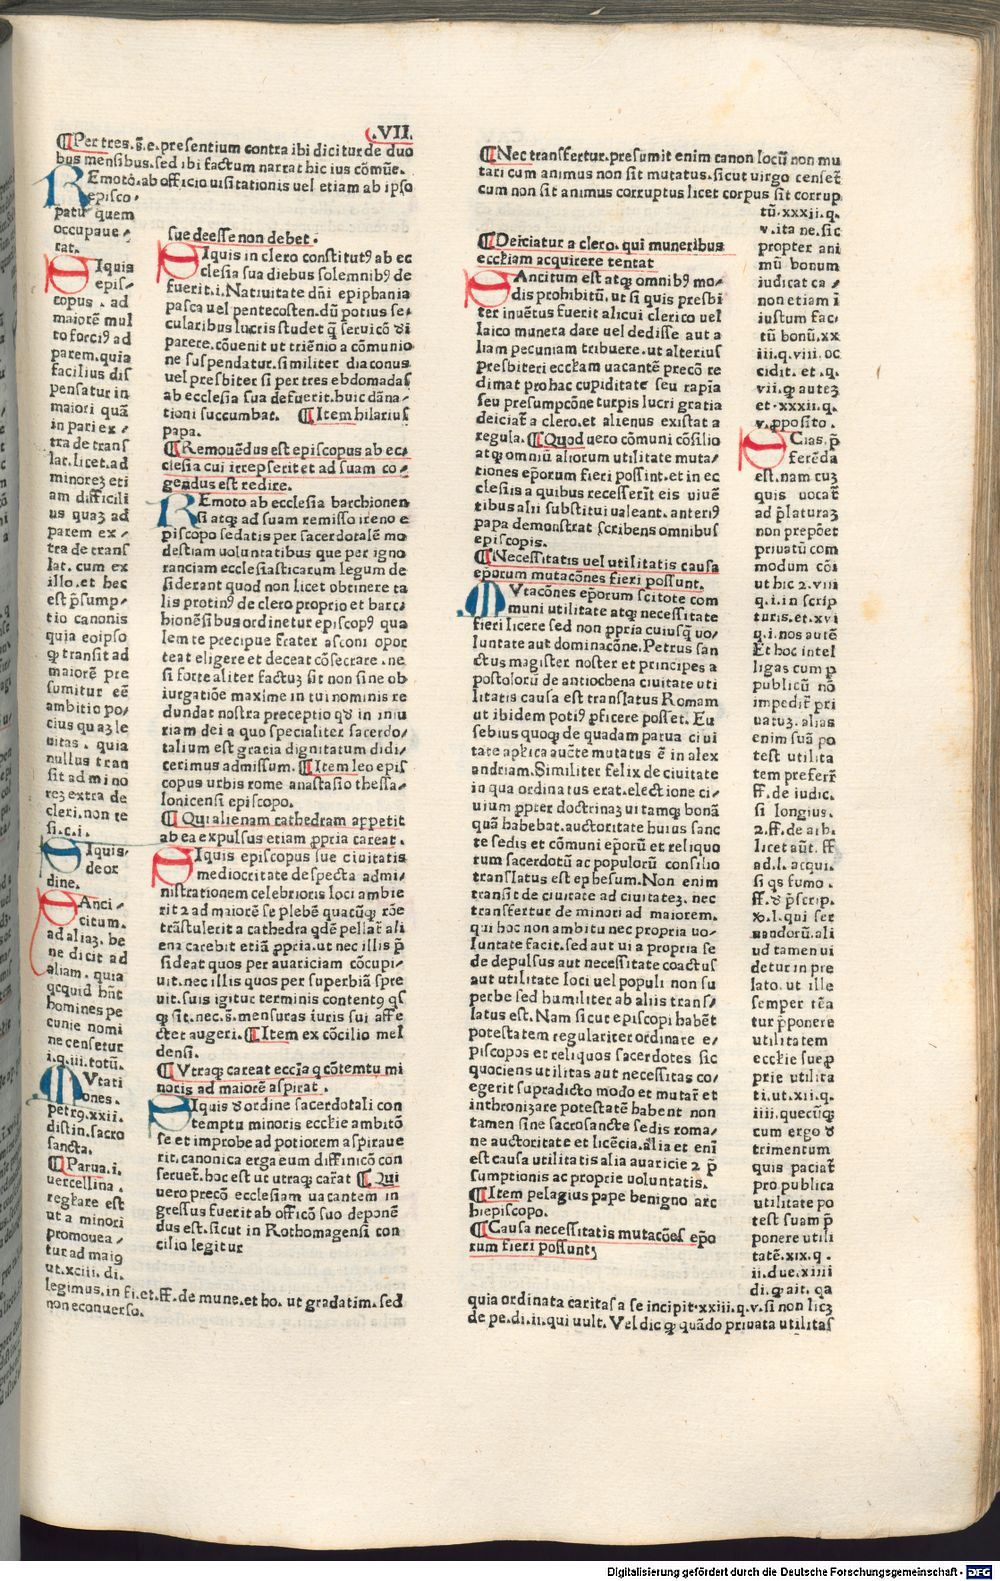 .VII.
¶Per tres.s̄.e.presentium contra ibi dicitur de duo
bus mensibus.sed ibi factum narrat hic ius cōmūe.
REmotō.ab officio uisitationis uel etiam ab ipso
episco⸗
patu quem
occupaue⸗
rat.
SIquis
epis⸗
copus . ad
maiorē mul
to forciꝰ ad
parem.quia
facilius dis
pensatur in
maiori quā
in pari ex⸗
tra de trans
lat.licet.ad
minoreꝫ eti
am difficili
us quaꝫ ad
parem ex⸗
tra de trans
lat. cum ex
illo.et hec
est p̄sump⸗
tio canonis
quia eoipso
ꝙ transit ad
maiorē pre
sumitur eē
ambitio po⸗
cius quaꝫ le
uitas . quia
nullus tran
sit ad mino
reꝫ extra de
cleri.non re
si.c.i.
SIquis⸗
de or
dine.
SAnci⸗
citum.
ad aliaꝫ. be
ne dicit ad
aliam . quia
qcquid hn̄t
homines pe
cunie nomi
ne censetur
i.q.iii.totū.
MVtati
ones.
petrꝰ.xxii.
distin.sacro
sancta.
¶Parua.i.
uercellina .
regkare est
ut a minori
promouea⸗
tur ad maiꝰ
ut.xciii.di.
legimus.in fi.et.ff.de mune.et ho. ut gradatim.sed
non econuerso.
sue deesse non debet .
SIquis in clero constitutꝰ ab ec
clesia sua diebus solemnibꝰ de
fuerit.i.Natiuitate dn̄i epiphania
pasca uel pentecosten.dū potius se⸗
cularibus lucris studet q̄ seruicō di
parere.cōuenit ut triēnio a cōmunio
ne suspendatur.similiter diaconus
uel presbiter si per tres ebdomadas
ab ecclesia sua defuerit.huic dāna⸗
tioni succumbat. ¶Item hilarius
papa.
¶Remouēdus est episcopus ab ecc⸗
clesia cui irrepserit et ad suam co⸗
gendus est redire.
REmoto ab ecclesia barchionen
si atqꝫ ad suam remisso ireno e
piscopo sedatis per sacerdotalē mo
destiam uoluntatibus que per igno
ranciam ecclesiasticarum legum de
siderant quod non licet obtinere ta
lis protinꝰ de clero proprio et barc⸗
bionēsibus ordinetur episcopꝰ qua
lem te precipue frater asconi opor
teat eligere et deceat cōsecrare . ne
si forte aliter factuꝫ sit non sine ob
iurgatiōe maxime in tui nominis re
dundat nostra preceptio qd in iniu
riam dei a quo specialiter sacerdo⸗
talium est gracia dignitatum didi⸗
cerimus admissum. ¶Item leo epis
copus urbis rome anastasio thessa⸗
lonicensi episcopo.
¶Qui alienam cathedram appetit
ab ea expulsus etiam ꝓpria careat .
SIquis episcopus sue ciuitatis
mediocritate despecta admi⸗
nistrationem celebrioris loci ambie
rit ⁊ ad maiorē se plebē quacūqꝫ rōe
trāstulerit a cathedra qdē pellat̄ ali
ena carebit etiā ꝓpria.ut nec illis p̄
sideat quos per auariciam cōcupi⸗
uit.nec illis quos per superbiā spre
uit.suis igitur terminis contentꝰ qs
ꝙ sit.nec.s̄.mensuras iuris sui affe
ctet augeri. ¶Item ex cōcilio mel
densi.
¶Vtraqꝫ careat eccīa q cōtemtu mi
noris ad maiorē aspirat .
SIquis d̄ ordine sacerdotali con
temptu minoris ecckie ambitō
se et improbe ad potiorem aspiraue
rit.canonica erga eum diffinicō con
seruet̄.hoc est ut utraqꝫ car̄at ¶Qui
uero precō ecclesiam uacantem in
gressus fuerit ab officō suo deponē
dus est.sicut in Rothomagensi con
cilio legitur
¶Nec transfertur.presumit enim canon locū non mu
tari cum animus non sit mutatus.sicut uirgo censet̄
cum non sit animus corruptus licet corpus sit corrup
¶Deiciatur a clero. qui muneribus
ecckiam acquirere tentat
SAncitum est atqꝫ omnibꝰ mo⸗
dis prohibitū.ut si quis presbi
ter inuētus fuerit alicui clerico uel
laico munera dare uel dedisse aut a
liam pecuniam tribuere.ut alterius
presbiteri ecckam uacantē precō re
dimat pro hac cupiditate seu rapīa
seu presumpcōne turpis lucri gratia
deiciat̄ a clero.et alienus existat a
regula. ¶Quod uero cōmuni cōsilio
atqꝫ omniū aliorum utilitate muta⸗
tiones ep̄orum fieri possint.et in ec
clesiis a quibus recesserīt eis uiuē
tibus alii substitui ualeant.anteriꝰ
papa demonstrat scribens omnibus
episcopis.
¶Necessitatis uel utilitatis causa
ep̄orum mutacōnes fieri possunt.
MVtacōnes ep̄orum scitote com
muni utilitate atqꝫ necessitate
fieri licere sed non ꝓpria cuiusq̄ uo⸗
luntate aut dominacōne.Petrus san
ctus magister noster et principes a
postolorū de antiochena ciuitate uti
litatis causa est translatus Romam
ut ibidem potiꝰ ꝓficere posset. Eu
sebius quoqꝫ de quadam parua ciui
tate apkica auc̄te mutatus ē in alex
andriam.Similiter felix de ciuitate
in qua ordinatus erat.electione ci⸗
uium ꝓpter doctrinaꝫ uitamqꝫ bonā
quā habebat.auctoritate huius sanc
te sedis et cōmuni ep̄orū et reliquo
rum sacerdotū ac populorū consilio
translatus est ephesum.Non enim
transit de ciuitate ad ciuitateꝫ. nec
transfertur de minori ad maiorem.
qui hoc non ambitu nec propria uo⸗
luntate facit.sed aut ui a propria se
de depulsus aut necessitate coactus
aut utilitate loci uel populi non su
perbe sed humiliter ab aliis trans⸗
latus est.Nam sicut episcopi habēt
potestatem regulariter ordinare e⸗
piscopos et reliquos sacerdotes sic
quociens utilitas aut necessitas co⸗
egerit supradicto modo et mutar̄ et
inthronizare potestatē habent non
tamen sine sacrosancte sedis roma⸗
ne auctoritate et licēcia.alia et enī
est causa utilitatis alia auaricie ⁊ p̄
sumptionis ac proprie uoluntatis.
¶Item pelagius pape benigno arc
hiepiscopo.
¶Causa necessitatis mutacōes ep̄o
rum fieri possuntꝫ
tū.xxxii.q.
v.ita ne.sic
propter ani
mū bonum
iudicat ca⸗
non etiam i
iustum fac⸗
tū bonū.xx
iii.q.viii.oc
cidit. et .q.
vii.ꝙ auteꝫ
et.xxxii.q.
v.ꝓposito.
SCias.p̄
ferēda
est.nam cuꝫ
quis uocat̄
ad p̄laturaꝫ
non prepōet
priuatū com
modum cōi
ut hic ⁊.viii
q.i.in scrip
turis.et.xvi
q.i.nos autē
Et hoc intel
ligas cum ꝑ
publicū nō
impedit̄ pri
uatuꝫ. alias
enim suā po
test utilita
tem prefer̄r
ff.de iudic.
si longius.
⁊.ff.de arb.
licet aūt. ff
ad.l.acqui.
si qs fumo.
ff. d̄ p̄scrip.
x̄.l.qui ser
uandorū.ali
ud tamen ui
detur in pre
lato.ut ille
semper tēa
tur p̄ponere
utilitatem
ecckie sue ꝓ
prie utilita
ti.ut.xii.q.
iiii.quecūqꝫ
cum ergo d̄
trimentum
quis paciat̄
pro publica
utilitate po
test suam p̄
ponere utili
tatē.xix.q.
ii.due.xiiii
di.ꝙ ait. qa
quia ordinata caritas a se incipit.xxiii.q.v.si non licꝫ
de pe.di.ii.qui uult. Vel dic ꝙ quādo priuata utilitas
Digitalisierung gefördert durch die Deutsche Forschungsgemeinschaft - DFG